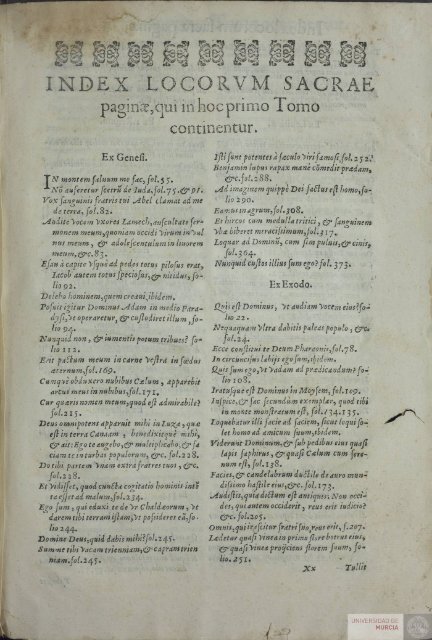 INDEX LOCORVM SACRAE
paginæ, qui in hoc primo Tomo
continentur.
Ex Genesi.
IN montem saluum me fac, fol. 55.
Nõ auferetur sceptrũ de Iuda, fol. 75. & 91.
Vox sanguinis fratris tui Abel clamat ad me
de terra, fol. 82.
Audite vocem vxores Lamech, auscultate ser-
monem meum, quoniam occidi virum in vul
nus meum, & adolescentulum in liuorem
meum, &c. 83.
Esau à capite vsqui ad pedes totus pilosus erat,
Iacob autem totus speciosus, & nitidus, fo-
lio 92.
Delebo hominem, quem creaui, ibidem.
Posuit igitur Dominus Adam in medio Para-
dysi, vt operaretur, & custodiret illum, fo-
lio 94.
Nunquid non, & iumentis potum tribues? fo-
lio 112.
Erit pactum meum in carne vestra in fœdus
æternum, fol. 169.
Cumque obduxero nubibus Cælum, apparebit
arcus meus in nubibus, fol. 171.
Cur quæris nomen meum, quod est admirabile?
fol. 215.
Deus omnipotens apparuit mihi in Luza, quæ
est in terra Canaam, benedixitquè mihi,
& ait: Ego te augebo, & multiplicabo, & fa
ciam te in turbas populorum, &c. fol. 228.
Do tibi partem vnam extra fratres tuos, &c.
fol. 228.
Et vidisset, quod cuncta cogitatio hominis inten
ta esset ad malum, fol. 234.
Ego sum, qui eduxi te de Vr Chaldæorum, vt
darem tibi terram istam, vt possideres eã, fo-
lio 244.
Domine Deus, quid dabis mihi? fol. 245.
Summe tibi vacam triennam, & capram trien
nam. fol. 245.
Isti sunt potentes à sæculo viri famosi, fol. 252.
Benjamin lupus rapax manè comedit prædam,
&c. fol. 288.
Ad imaginem quippè Dei factus est homo, fo-
lio 290.
Eamus in agrum, fol. 308.
Et hircos cum medulla tritici, & sanguinem
vbæ biberet meracissimum, fol. 317.
Loquar ad Dominũ, cum sim puluis, & cinis,
fol. 364.
Nunquid custos illius sum ego? fol. 373.
Ex Exodo.
Quis est Dominus, vt audiam vocem eius? fo-
lio 22.
Nequaquam vltra dabitis paleas populo, &c.
fol. 24.
Ecce constitui te Deum Pharaonis, fol. 78.
In circuncisus labijs ego sum, ibidem.
Quis sum ego, vt vadam ad prædicandum? fo-
lio 108.
Iratusque est Dominus in Moysem, fol. 109.
Inspice, & fac secundum exemplar, quod tibi
in monte monstratum est, fol. 134. 135.
Loquebatur illi facie ad faciem, sicut loqui so-
let homo ad amicum suum, ibidem.
Viderunt Dominum, & sub pedibus eius quasi
lapis saphirus, & quasi Cælum cum sere-
num est, fol. 138.
Facies, & candelabrum ductile de auro mun-
dissimo hastile eius, &c. fol. 173.
Audistis, quia dictum est antiquis. Non occi-
des, qui autem occiderit, reus erit iudicio?
&c. fol. 205.
Omnis, qui irascitur fratri suo, reus erit, f. 207.
Lædetur quasi vinea in primo flore botrus eius,
& quasi vinea proijciens florem suum, fo-
lio. 251.
Xx Tullit
UNIVERSIDAD DE
MURCIA